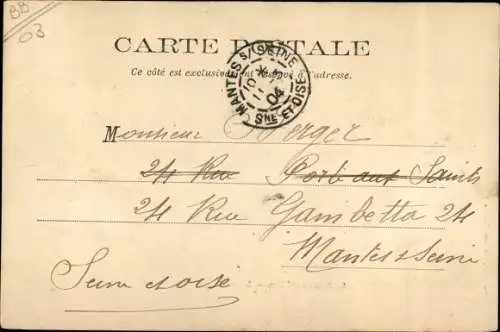 BB
03
CARTE POSTALE
Ce côté est exclusivement réservé à l'adresse.
MANTES S/ SEINE
10
11
04
SNE ET OISE
Monsieur Berger
24 Rue Port aux Saints
24 Rue Gambetta 24
Mantes s Seine
Seine et oise